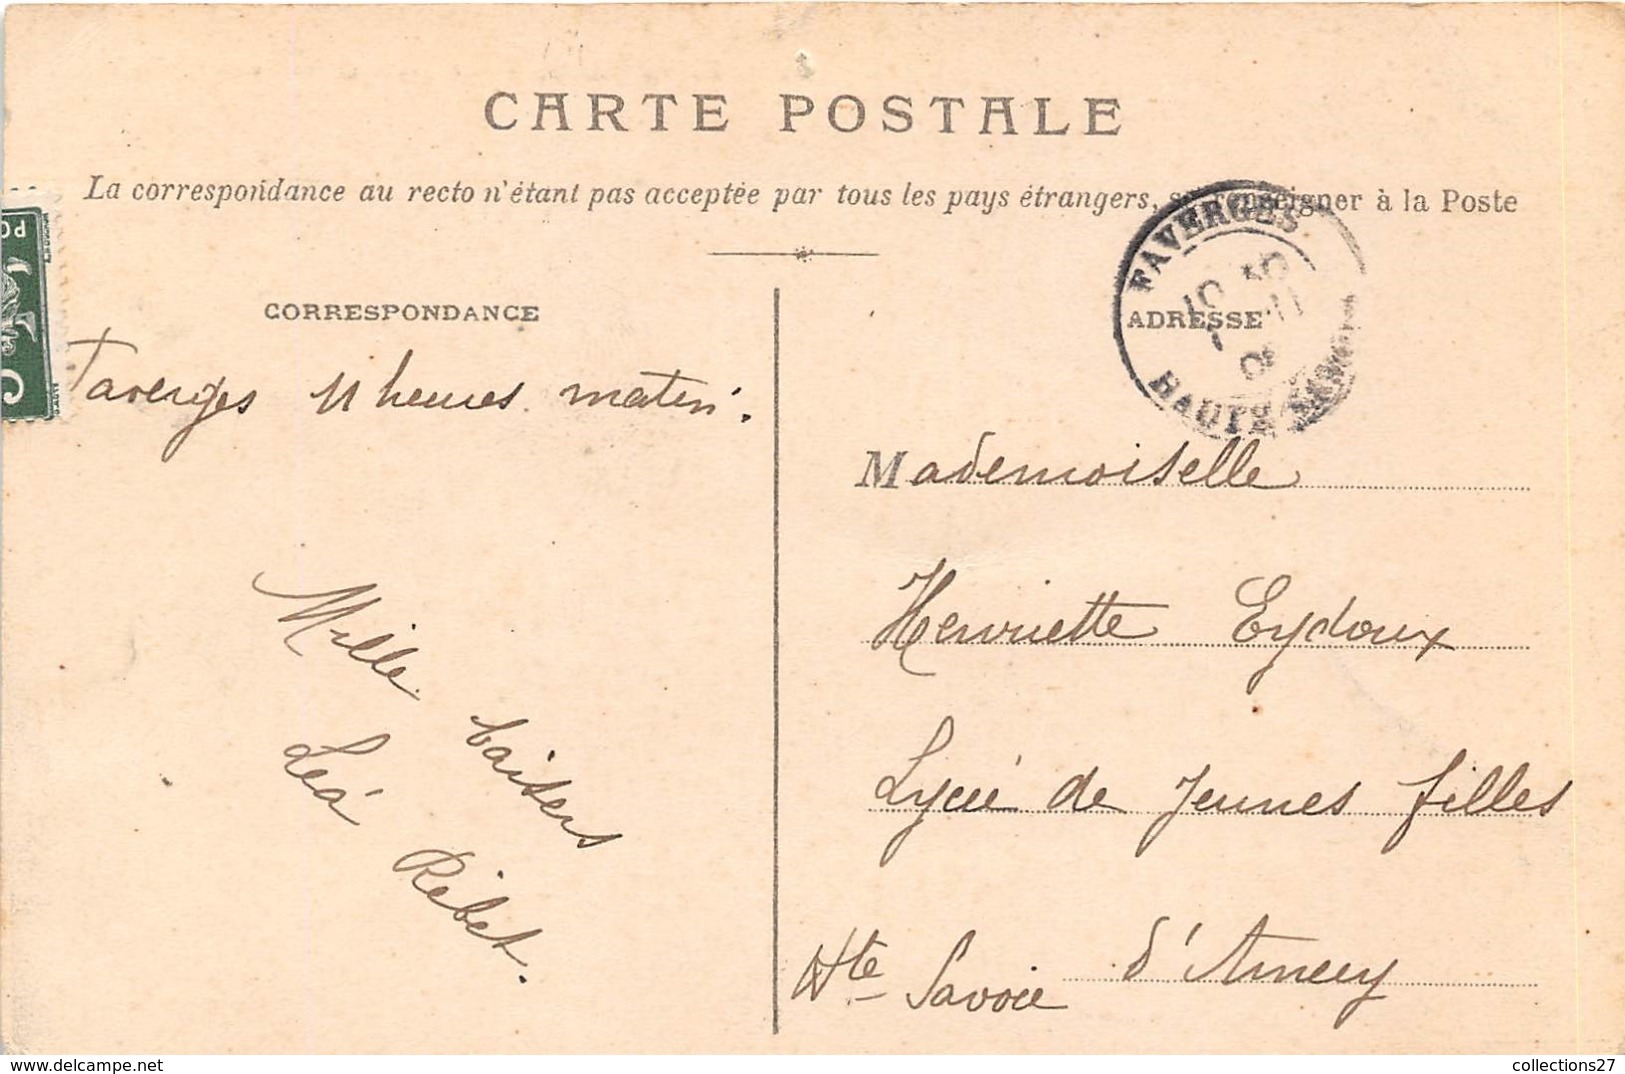 CARTE POSTALE
La correspondance au recto n'étant pas acceptée par tous les pays étrangers, se renseigner à la Poste
CORRESPONDANCE
ADRESSE
FAVERGES
HAUTE SAVOIE
Faverges 11 heures matin.
Mille baisers
Léa Rebet.
Mademoiselle
Henriette Eydoux
Lycée de Jeunes filles
d'Annecy
Hte Savoie
collections27